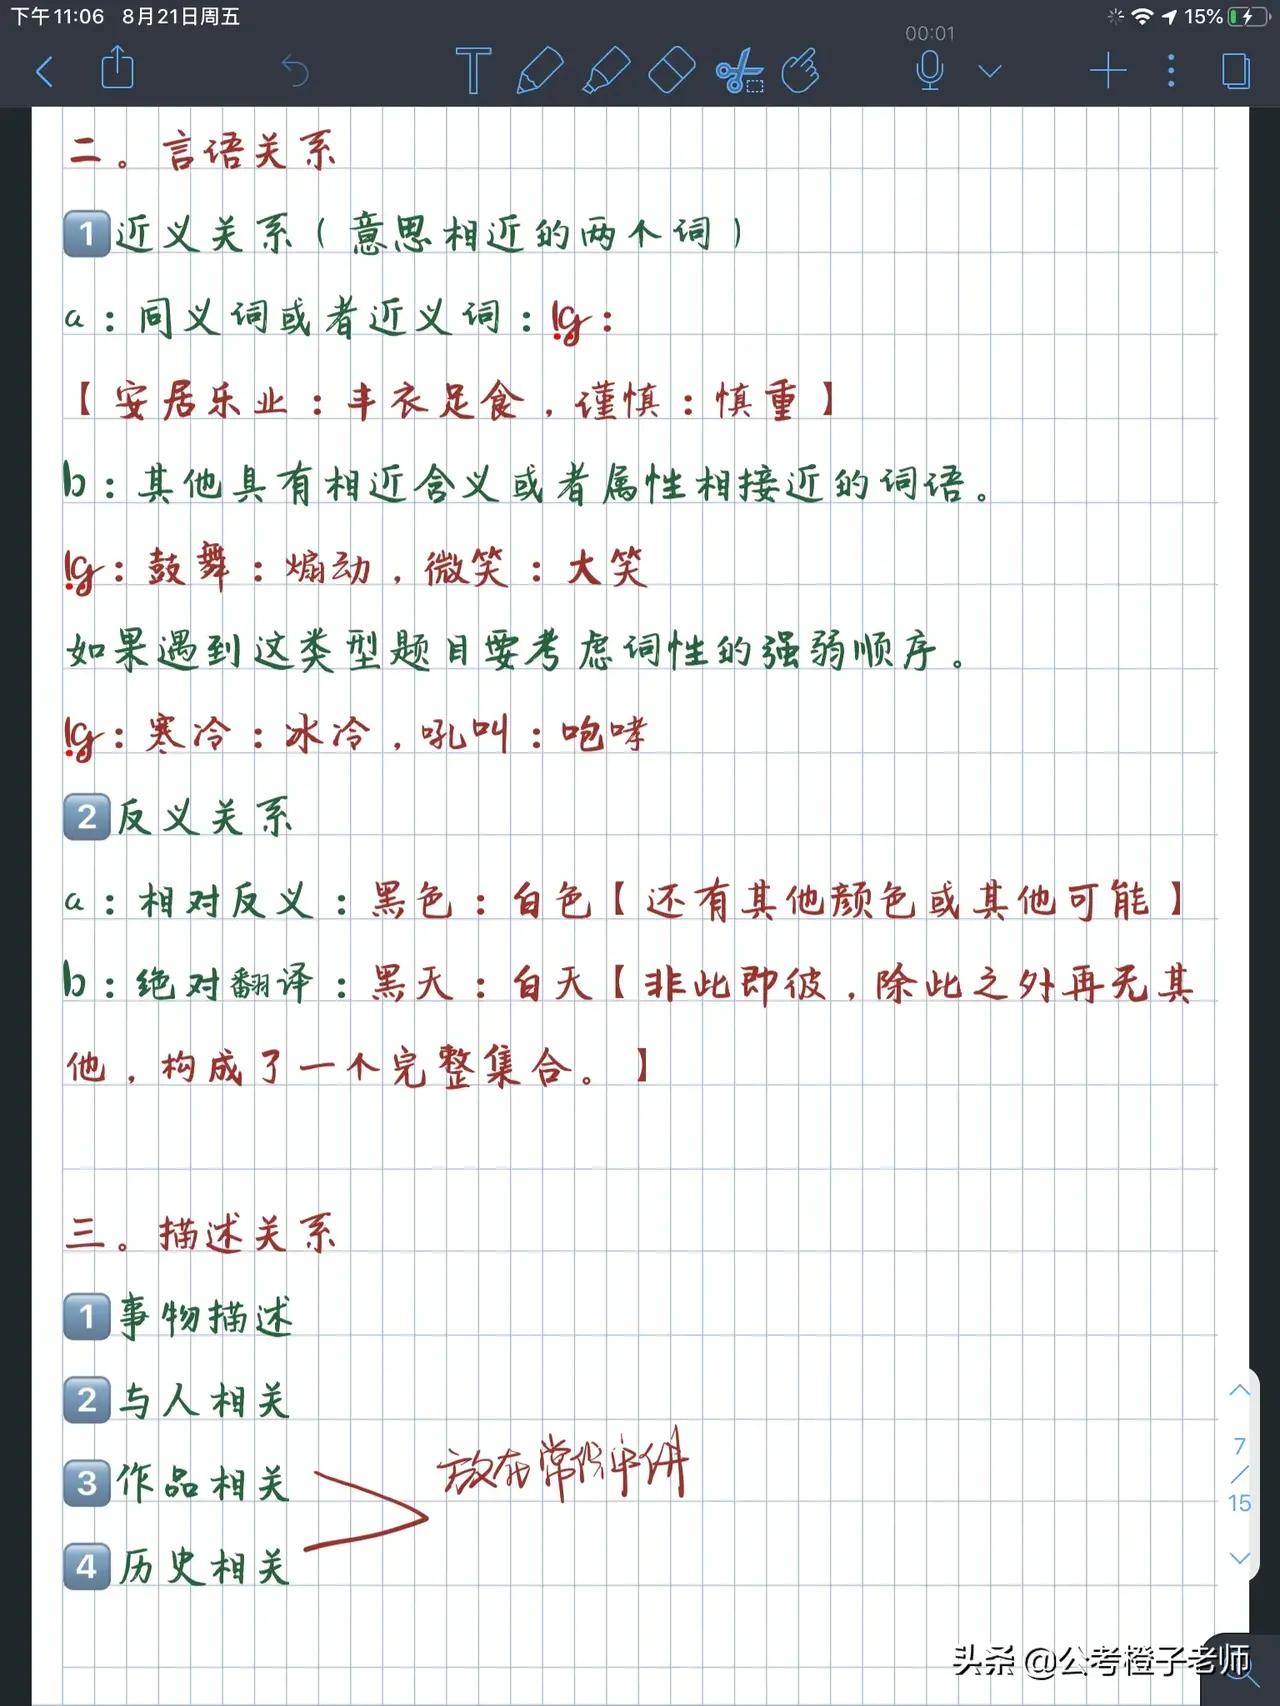 下午11:06 8月21日周五
15%
00:01
二。言语关系
1 近义关系(意思相近的两个词)
a:同义词或者近义词:lg:
【安居乐业:丰衣足食,谨慎:慎重】
b:其他具有相近含义或者属性相接近的词语。
lg:鼓舞:煽动,微笑:大笑
如果遇到这类型题目要考虑词性的强弱顺序。
lg:寒冷:冰冷,吼叫:咆哮
2 反义关系
a:相对反义:黑色:白色【还有其他颜色或其他可能】
b:绝对翻译:黑天:白天【非此即彼,除此之外再无其
他,构成了一个完整集合。】
三。描述关系
1 事物描述
2 与人相关
3 作品相关
放在常识
4 历史相关
7
/
15
头条 @公考橙子老师